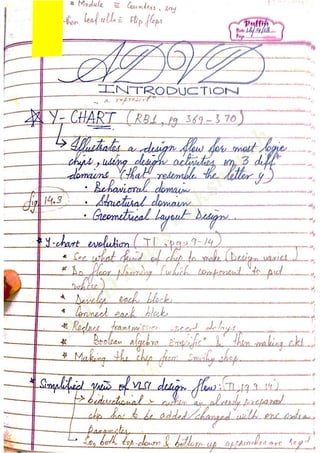 * Module ≡ Counters, any
then Leaf cells ≡ flip flops
Duffin
Date
Page 1
ADVD
INTRODUCTION
* Y-CHART (RB1, pg 369-370)
↳ Illustrates a design flow for most logic
chips, using design activities on 3 diffⁿ
domains (that resemble the letter y)
fig. 14.3
• Behavioral domain
• Structural domain
• Geometrical Layout Design.
* Y-chart evolution (T1, pg. 9-14)
* See what kind of chip to make (Design varies)
* Do floor planning (which component to put
where)
* Develop each block
* Connect each block
* Reduce transmission delays
* Boolean algebra & then making ckt
* Making the chip from
* Simplified view of VLSI design flow: (T1, pg 9-14)
→ bidirectional → when an already prepared
chip has to be added/changed with one extra
parameter
↳ both top-down & bottom up approaches are reqd